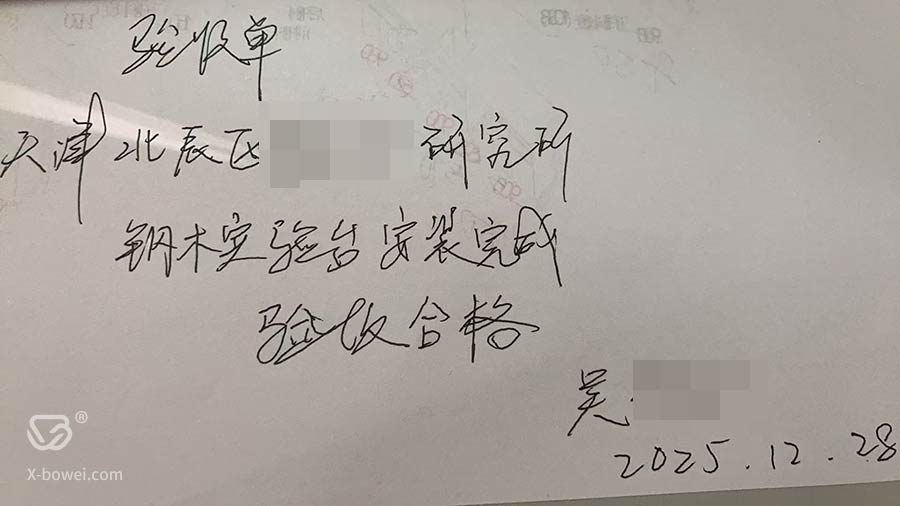 验收单
天津北辰区 研究所
钢木实验台安装完成
验收合格
吴
2025.12.28
®
X-bowei.com